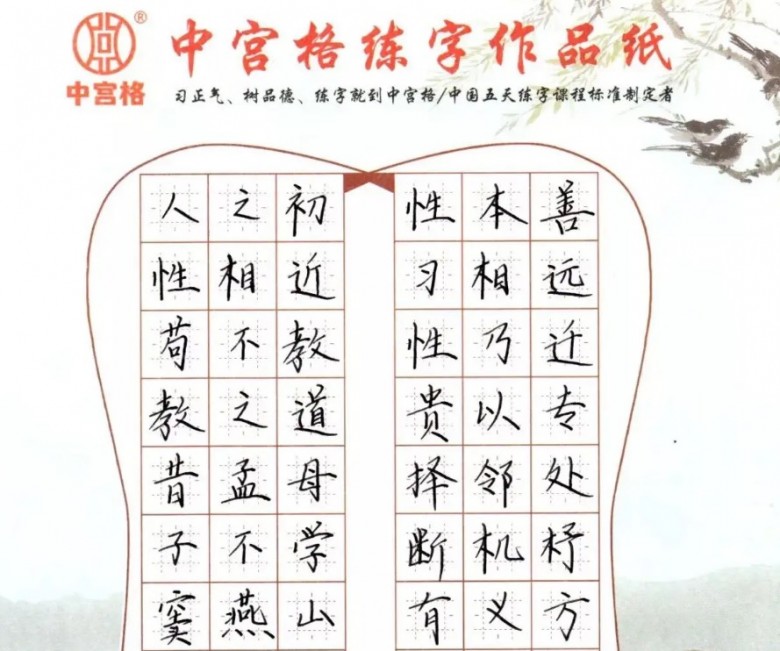 ®
中宫格
中宫格练字作品纸
习正气、树品德、练字就到中宫格/中国五天练字课程标准制定者
人之初 性本善
性相近 习相远
苟不教 性乃迁
教之道 贵以专
昔孟母 择邻处
子不学 断机杼
窦燕山 有义方